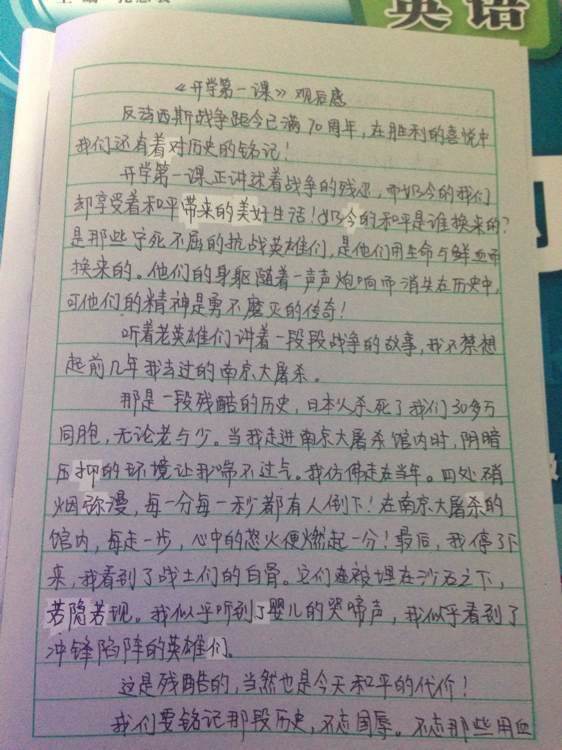 英语
《开学第一课》观后感
反法西斯战争距今已满70周年,在胜利的喜悦中
我们还有着对历史的铭记!
开学第一课正讲述着战争的残忍,而如今的我们
却享受着和平带来的美好生活!如今的和平是谁换来的?
是那些宁死不屈的抗战英雄们,是他们用生命与鲜血而
换来的。他们的身躯随着一声声炮响而消失在历史中,
可他们的精神是勇不磨灭的传奇!
听着老英雄们讲着一段段战争的故事,我不禁想
起前几年我去过的南京大屠杀。
那是一段残酷的历史,日本人杀死了我们30多万
同胞,无论老与少。当我走进南京大屠杀馆内时,阴暗
压抑的环境让我喘不过气。我仿佛走在当年。四处硝
烟弥漫,每一分每一秒都有人倒下!在南京大屠杀的
馆内,每走一步,心中的怒火便燃起一分!最后,我停了下
来,我看到了战士们的白骨。它们在被埋在沙石之下,
若隐若现。我似乎听到了婴儿的哭啼声,我似乎看到了
冲锋陷阵的英雄们。
这是残酷的,当然也是今天和平的代价!
我们要铭记那段历史,不忘国辱。不忘那些用血